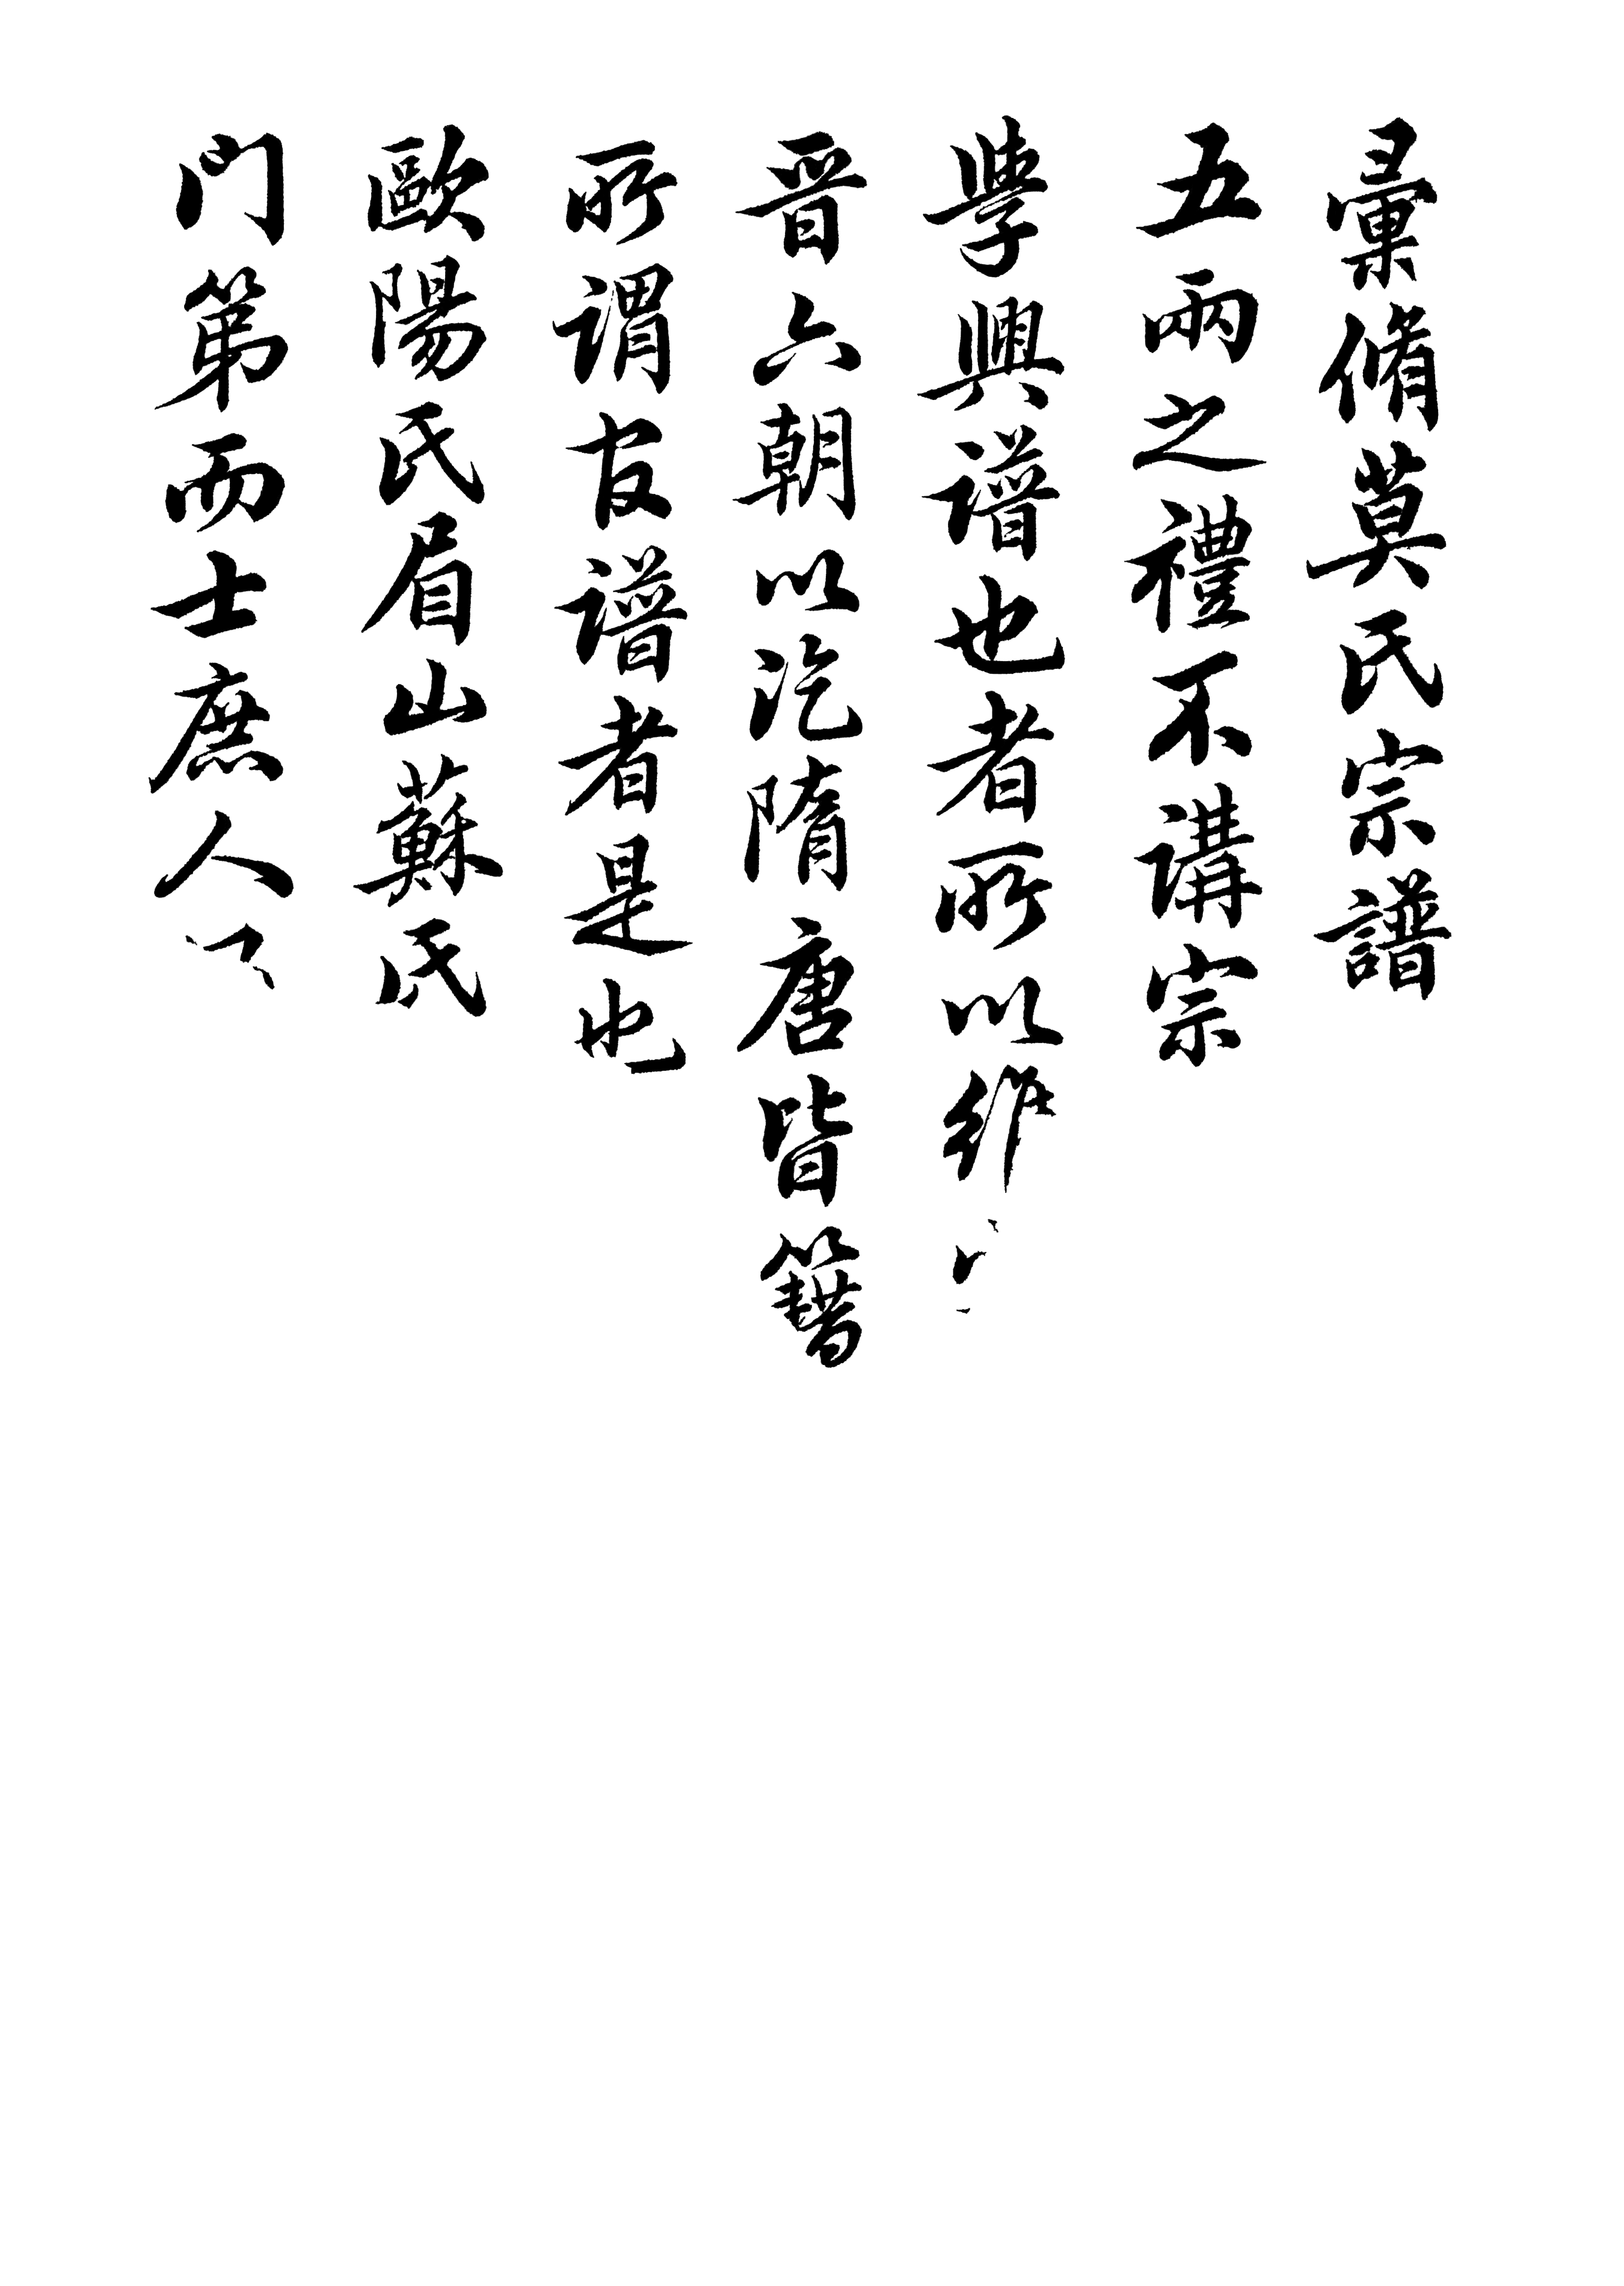 彙脩莫氏宗譜
五兩之禮不講宗
學興譜也者所以維
晉六朝以迄隋唐皆籍
所謂官譜者是也
歐陽氏眉山蘇氏
门第而士庶人